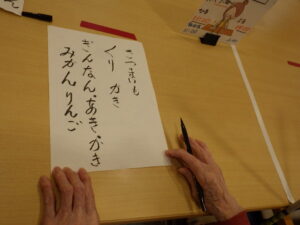 さつまいも
くり かき
ぎんなん、あき、がき
みかんりんご